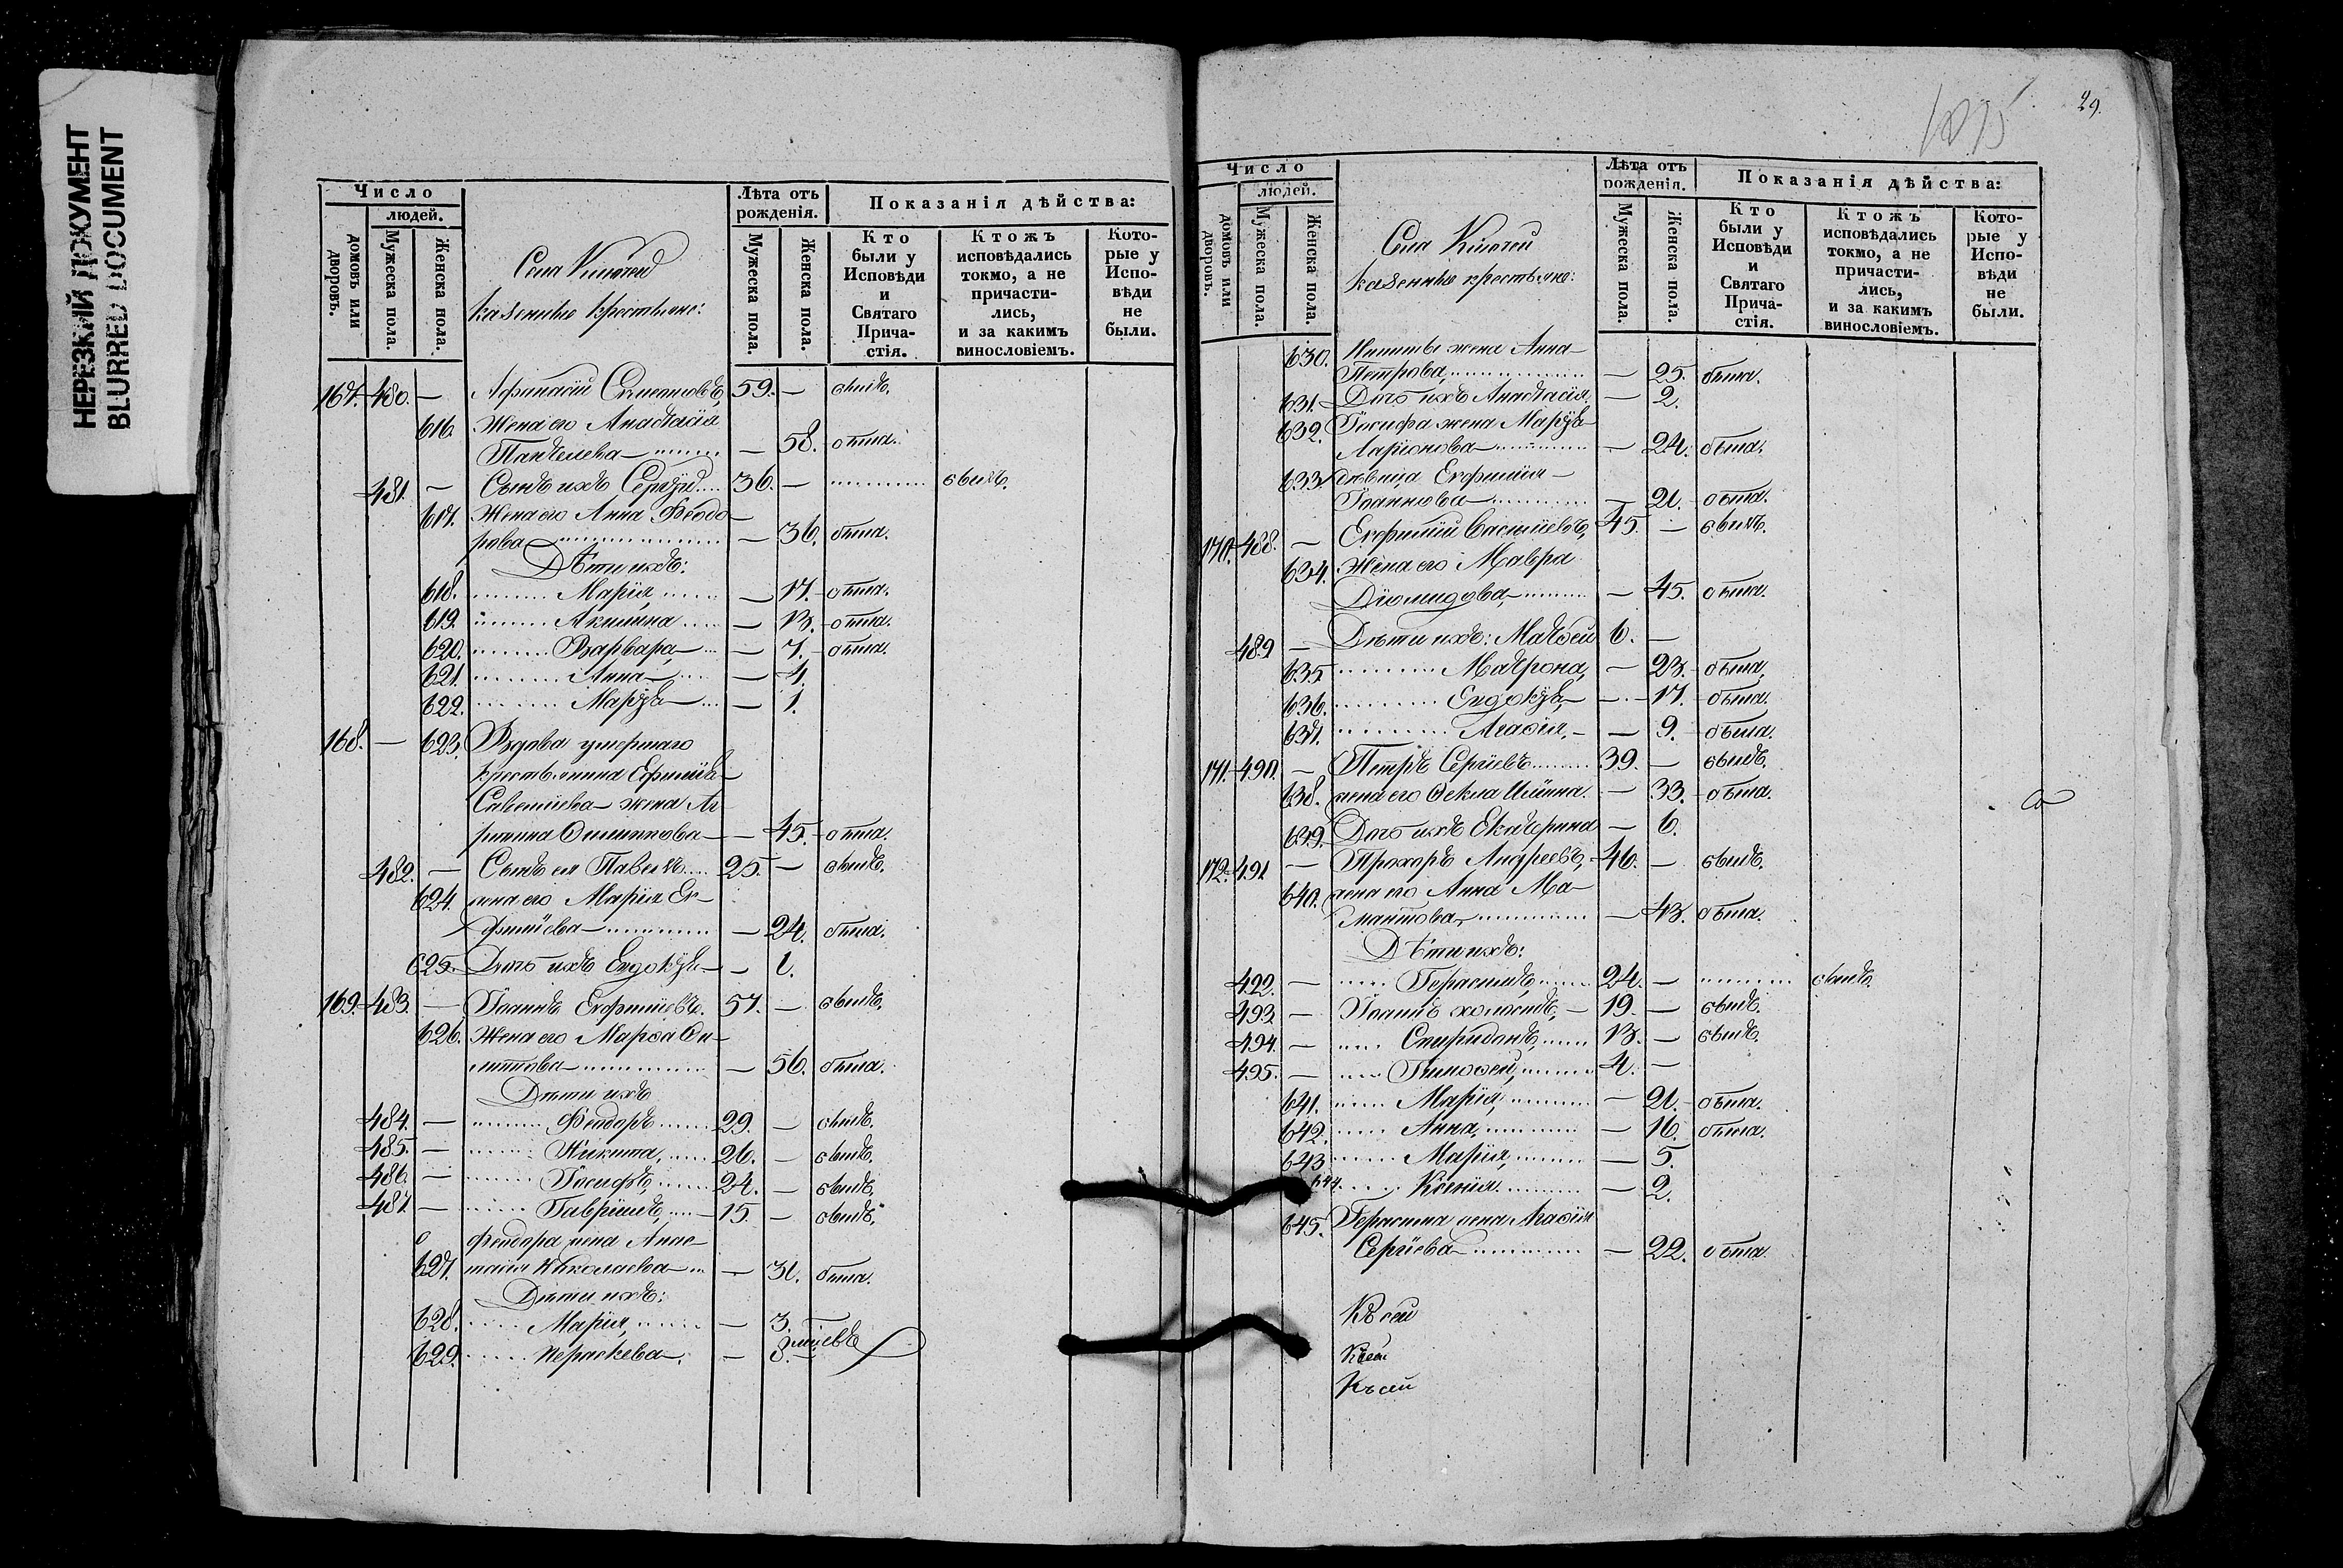 НЕРЕЗКИЙ ДОКУМЕНТ
BLURRED DOCUMENT
Число
людей.
домовъ или дворовъ.
Мужеска пола.
Женска пола.
Села
казенные крестьяне:
Лѣта отъ рожденія.
Мужеска пола.
Женска пола.
Показанія дѣйства:
Кто были у Исповѣди и Святаго Прича-стія.
Ктожъ исповѣдались токмо, а не причасти-лись, и за какимъ винословіемъ.
Кото-рые у Испо-вѣди не были.
167. 480. — Афанасій 59. — былъ.
616. Жена его Анастасія
— 58. была.
481. — Сынъ ихъ Сергѣй 36. — былъ.
617. Жена его Анна Ѳеодо-
рова — 36. была.
Дѣти ихъ:
618. Марія — 17. была.
619. Акилина — 13. была.
620. Варвара — 7. была.
621. Анна — 4.
622. Марѳа — 1.
168. — 623. Вдова умершаго
крестьянина Ефимія
Савельева жена Аг-
рипина — 45. была.
482. — Сынъ ея Павелъ 25. — былъ.
624. жена его Марія Ев-
фиміева — 24. была.
625. Дочь ихъ Евдокія — 1.
169. 483. — Іоаннъ Евфиміевъ. 57. — былъ.
626. Жена его Марѳа
— 56. была.
Дѣти ихъ
484. — Ѳеодоръ 29. — былъ.
485. — Никита, 26. — былъ.
486. — Іосифъ, 24. — былъ.
487. — Гавріилъ, 15. — былъ.
Ѳеодора жена Анас-
627. тасія Николаева — 31. была.
Дѣти ихъ:
628. Марія, — 3.
629. Параскева —
29.
Число
людей.
домовъ или дворовъ.
Мужеска пола.
Женска пола.
Села
казенные крестьяне:
Лѣта отъ рожденія.
Мужеска пола.
Женска пола.
Показанія дѣйства:
Кто были у Исповѣди и Святаго Прича-стія.
Ктожъ исповѣдались токмо, а не причасти-лись, и за какимъ винословіемъ.
Кото-рые у Испо-вѣди не были.
630. Никиты жена Анна
Петрова, — 25. была.
631. Дочь ихъ Анастасія. — 2.
632. Іосифа жена Марѳа
Ларіонова — 24. была.
633. дѣвица Евфимія
Іоаннова — 21. была.
170. 488. — Евфимій Васильевъ, 45. — былъ.
634. Жена его Мавра
Діомидова, — 45. была.
489 — Дѣти ихъ: Матѳей 6. —
635 Матрона, — 23. была.
636. Евдокія, — 17. была.
637. Агаѳія, — 9. была.
171. 490. — Петръ Сергіевъ 39. — былъ.
638. жена его Ѳекла Ильина. — 33. была.
639. Дочь ихъ Екатерина — 6.
172. 491 — Прохоръ Андреевъ, 46. — былъ.
640. жена его Анна Ма-
— 43. была.
Дѣти ихъ:
492. — Герасимъ, 24. — былъ.
493. — Іоаннъ холостъ, 19. — былъ.
494. — Спиридонъ, 13. — былъ.
495. — Тимоѳей, 4. —
641. Марія, — 21. была.
642. Анна, — 16. была.
643 Марія, — 5.
644. Ксенія. — 2.
645. Герасима жена Агаѳія
Сергіева — 22. была.
Къ сей
Къ сей
Къ сей